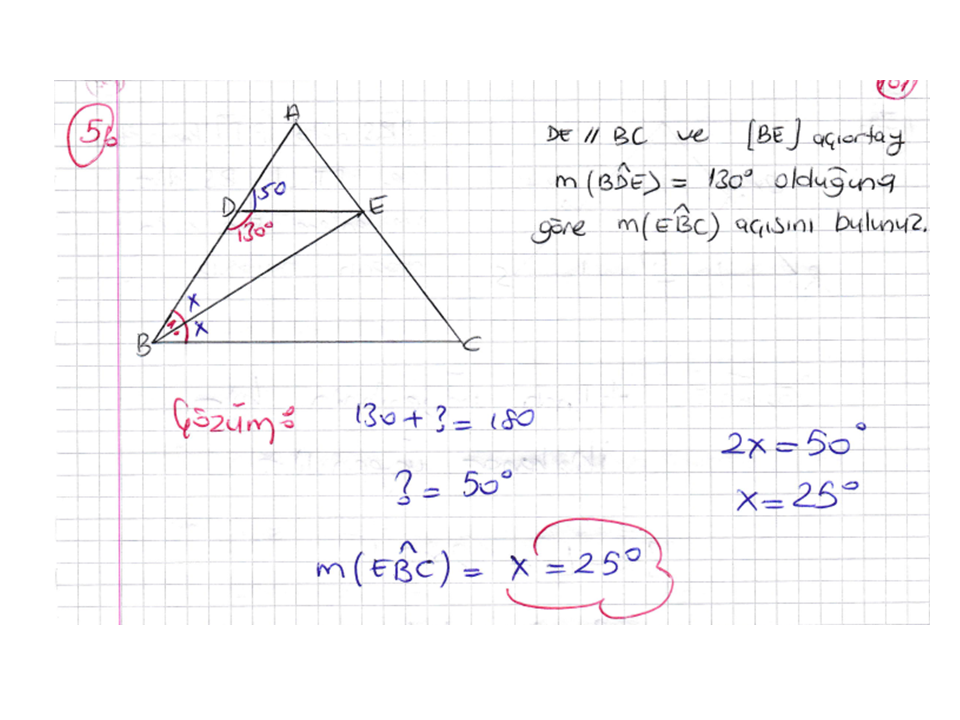 56
DE // BC ve [BE] açıortay
m(BD̂E) = 130° olduğuna
göre m(EB̂C) açısını bulunuz.
A
50
D
E
130°
x
x
B
C
Çözüm:
130 + ? = 180
2x = 50°
? = 50°
x = 25°
m(EB̂C) = x = 25°